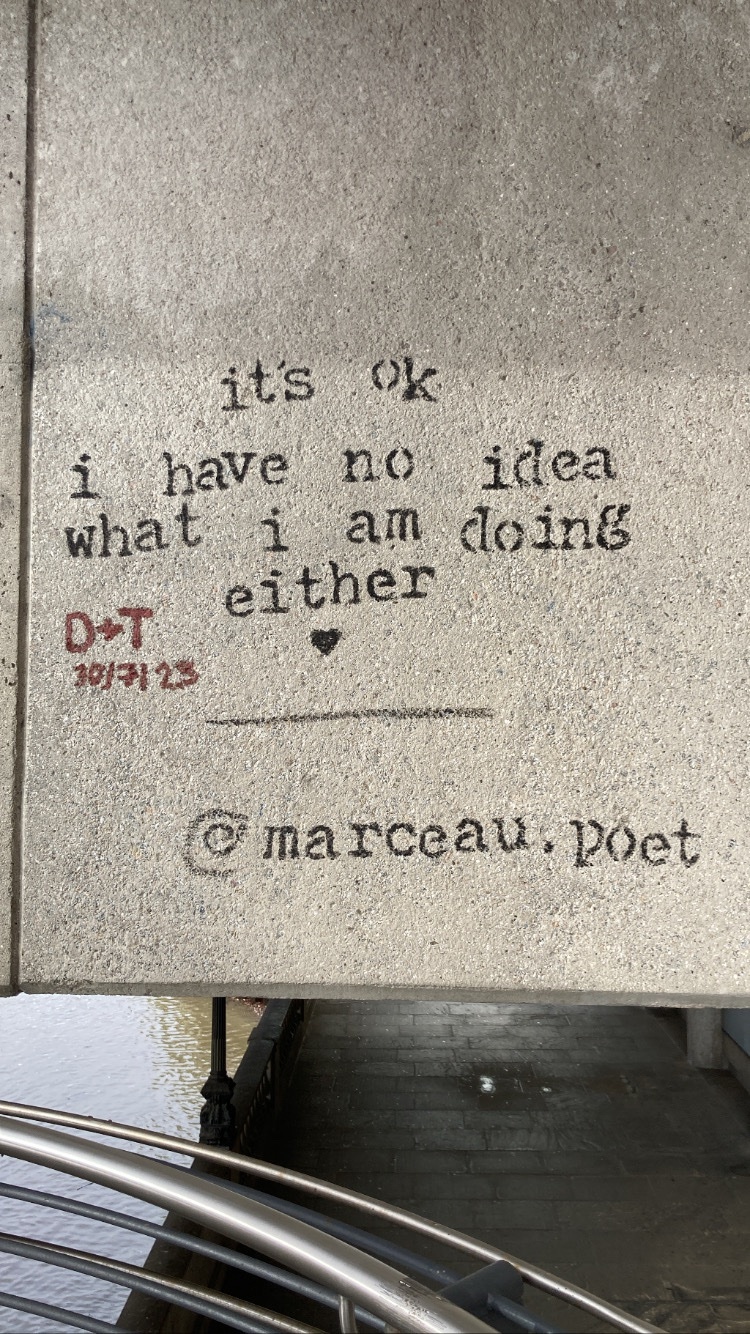 it's ok
i have no idea
what i am doing
either
♥
D+T
10/7/23
@marceau.poet